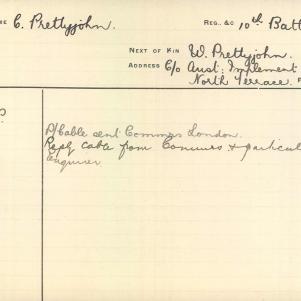 ME C. Prettyjohn Reg., &c 10th Batt
Next of Kin W. Prettyjohn.
Address C/o Aust: Implement
North Terrace.
P/Cable sent Commrs London.
Reply cable from Commrs & particul
enquirer